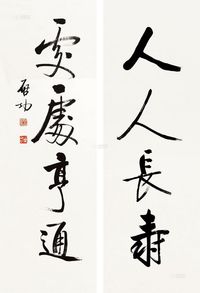 人人長壽
處處亨通
啟功